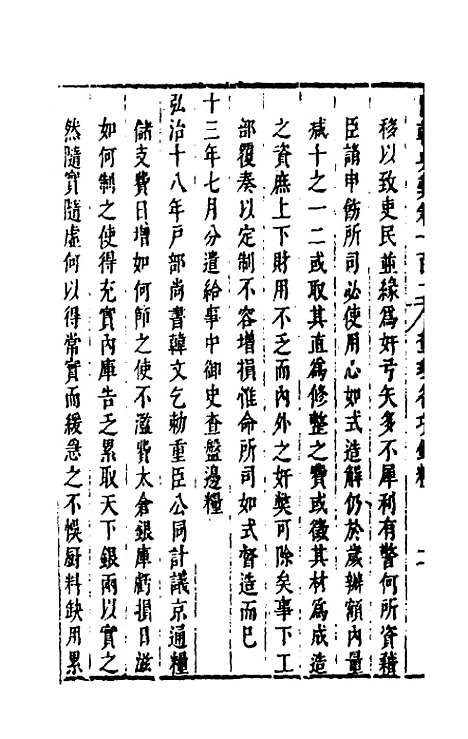 移以致吏民並緣為奸弓矢多不犀利有警何所資藉
臣請申飭所司必使用心如式造解仍於歲辦額內量
减十之一二或取其直為修整之費或徵其材為成造
之資庶上下財用不乏而內外之奸獘可除矣事下工
部覆奏以定制不容增損惟命所司如式督造而已
十三年七月分遣給事中御史查盤邊糧
弘治十八年戶部尚書韓文乞勅重臣公同計議京通糧
儲支費日增如何節之使不濫費太倉銀庫虧損日滋
如何制之使得充實內庫告乏累取天下銀兩以實之
然隨實隨虛何以得常實而緩急之不悞厨料缺用累